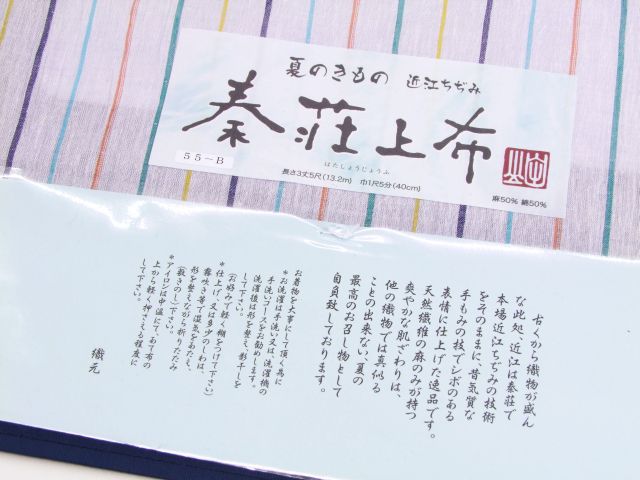 夏のきもの 近江ちぢみ
秦荘上布
はたしょうじょうふ
55~B
長さ3丈5尺(13.2m) 巾1尺5分(40cm)
麻50% 綿50%
古くから織物が盛ん
な此処、近江は秦荘で
本場近江ちぢみの技術
をそのままに、昔気質な
手もみの技でシボのある
表情に仕上げた逸品です。
天然繊維の麻のみが持つ
爽やかな肌ざわりは、
他の織物では真似る
ことの出来ない、夏の
最高のお召し物として
自負致しております。
お着物を大事にして頂く為に
*お洗濯は手洗い又は、洗濯機の
手洗いコースをお勧めします。
洗濯後は形を整え、影干しを
して下さい。
(お好みで軽く糊をつけて下さい)
*仕上げ、又は多少のしわは、
霧吹き等で湿気をあたえ、
形を整えながら折りたたみ
(敷きのし)下さい。
*アイロンは中温にて、あて布の
上から軽く押さえる程度に
して下さい。
織元